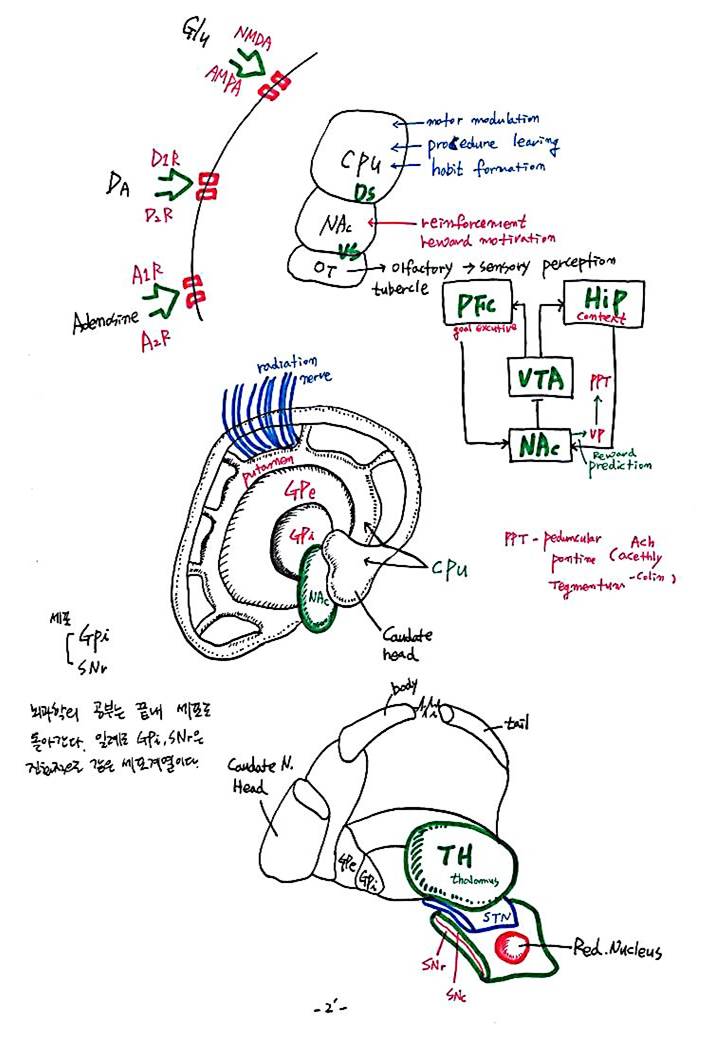 Glu
NMDA
AMPA
DA
D1R
D2R
A1R
Adenosine
A2R
CPU
DS
NAc
VS
OT
motor modulation
procedure learing
hobit formation
reinforcement
reward motivation
olfactory → sensory perception
tubercle
PFc
goal executive
HiP
context
VTA
PPT
VP
NAc
Reward
prediction
radiation
nerve
putamen
GPe
GPi
NAc
CPU
Caudate
head
PPT - peduncular
pontine
Tegmentum
Ach
(acethly
-colin)
세포
Gpi
SNr
뇌과학의 공부는 끝내 세포로
돌아간다. 일례로 GPi, SNr은
진화적으로 같은 세포계열이다.
body
tail
Caudate N.
Head
GPe
GPi
TH
thalamus
STN
SNr
SNc
Red. Nucleus
-2'-